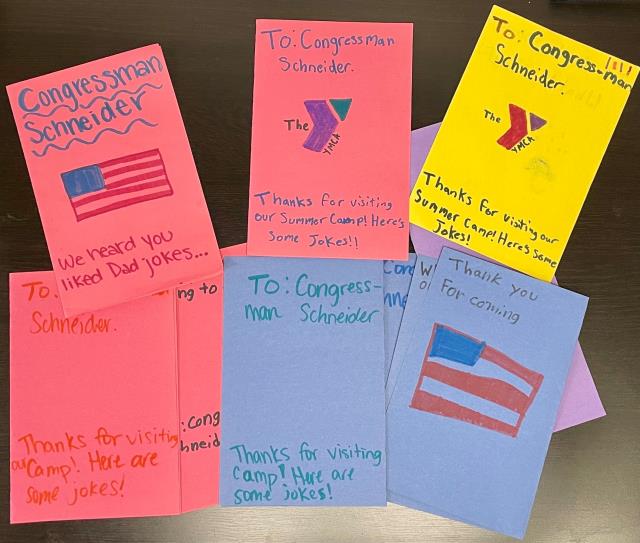 Congressman
Schneider
We heard you
liked Dad jokes...
To: Congressman
Schneider.
The
YMCA
Thanks for visiting
our Summer Camp! Here's
Some Jokes!!
To: Congress-man
Schneider.
The
YMCA
Thanks for visiting our
Summer Camp! Here's some
Jokes!
To:
Schneider.
Thanks for visiting
our Camp! Here are
some jokes!
ng to
:Cong
hneid
To: Congress-
man Schneider
Thanks for visiting
camp! Here are
some jokes!
Thank you
For coming